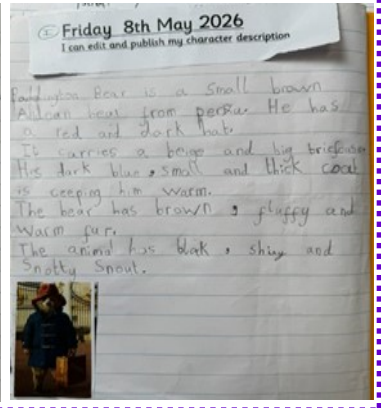 Friday 8th May 2026
I can edit and publish my character description
Paddington Bear is a small brown
bear from He has
a red and dark hat.
It carries a beige and big
His dark blue, small and thick coat
is ceeping him warm.
The bear has brown , fluffy and
warm fur.
The animal has blak , shiny and
Snotty Snout.